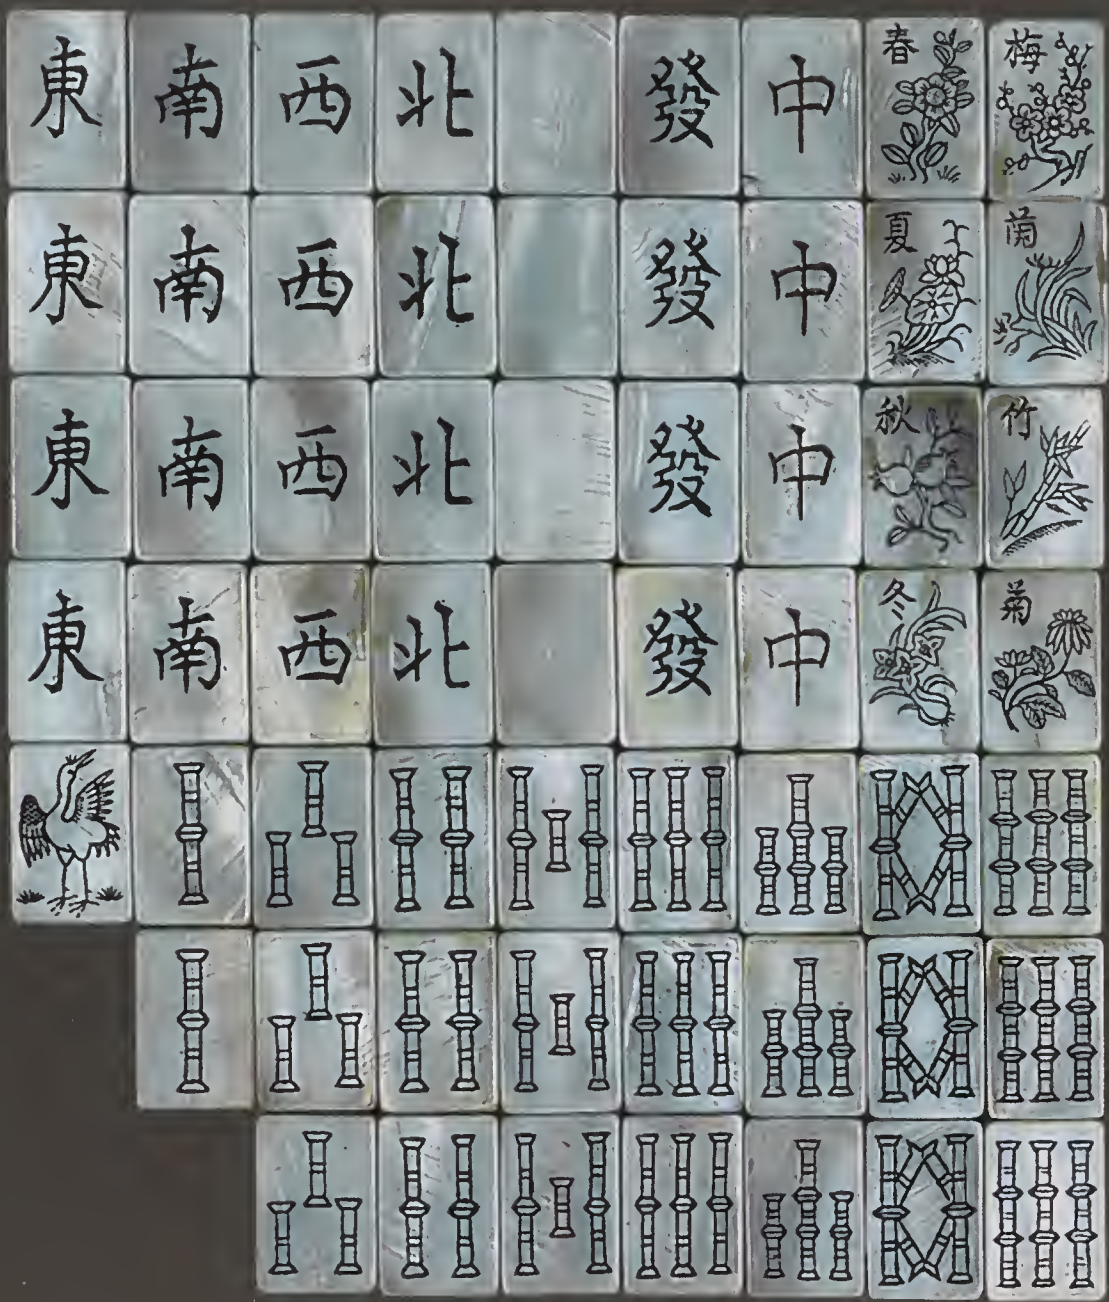 東 南 西 北 發 中 春 梅
東 南 西 北 發 中 夏 蘭
東 南 西 北 發 中 秋 竹
東 南 西 北 發 中 冬 菊